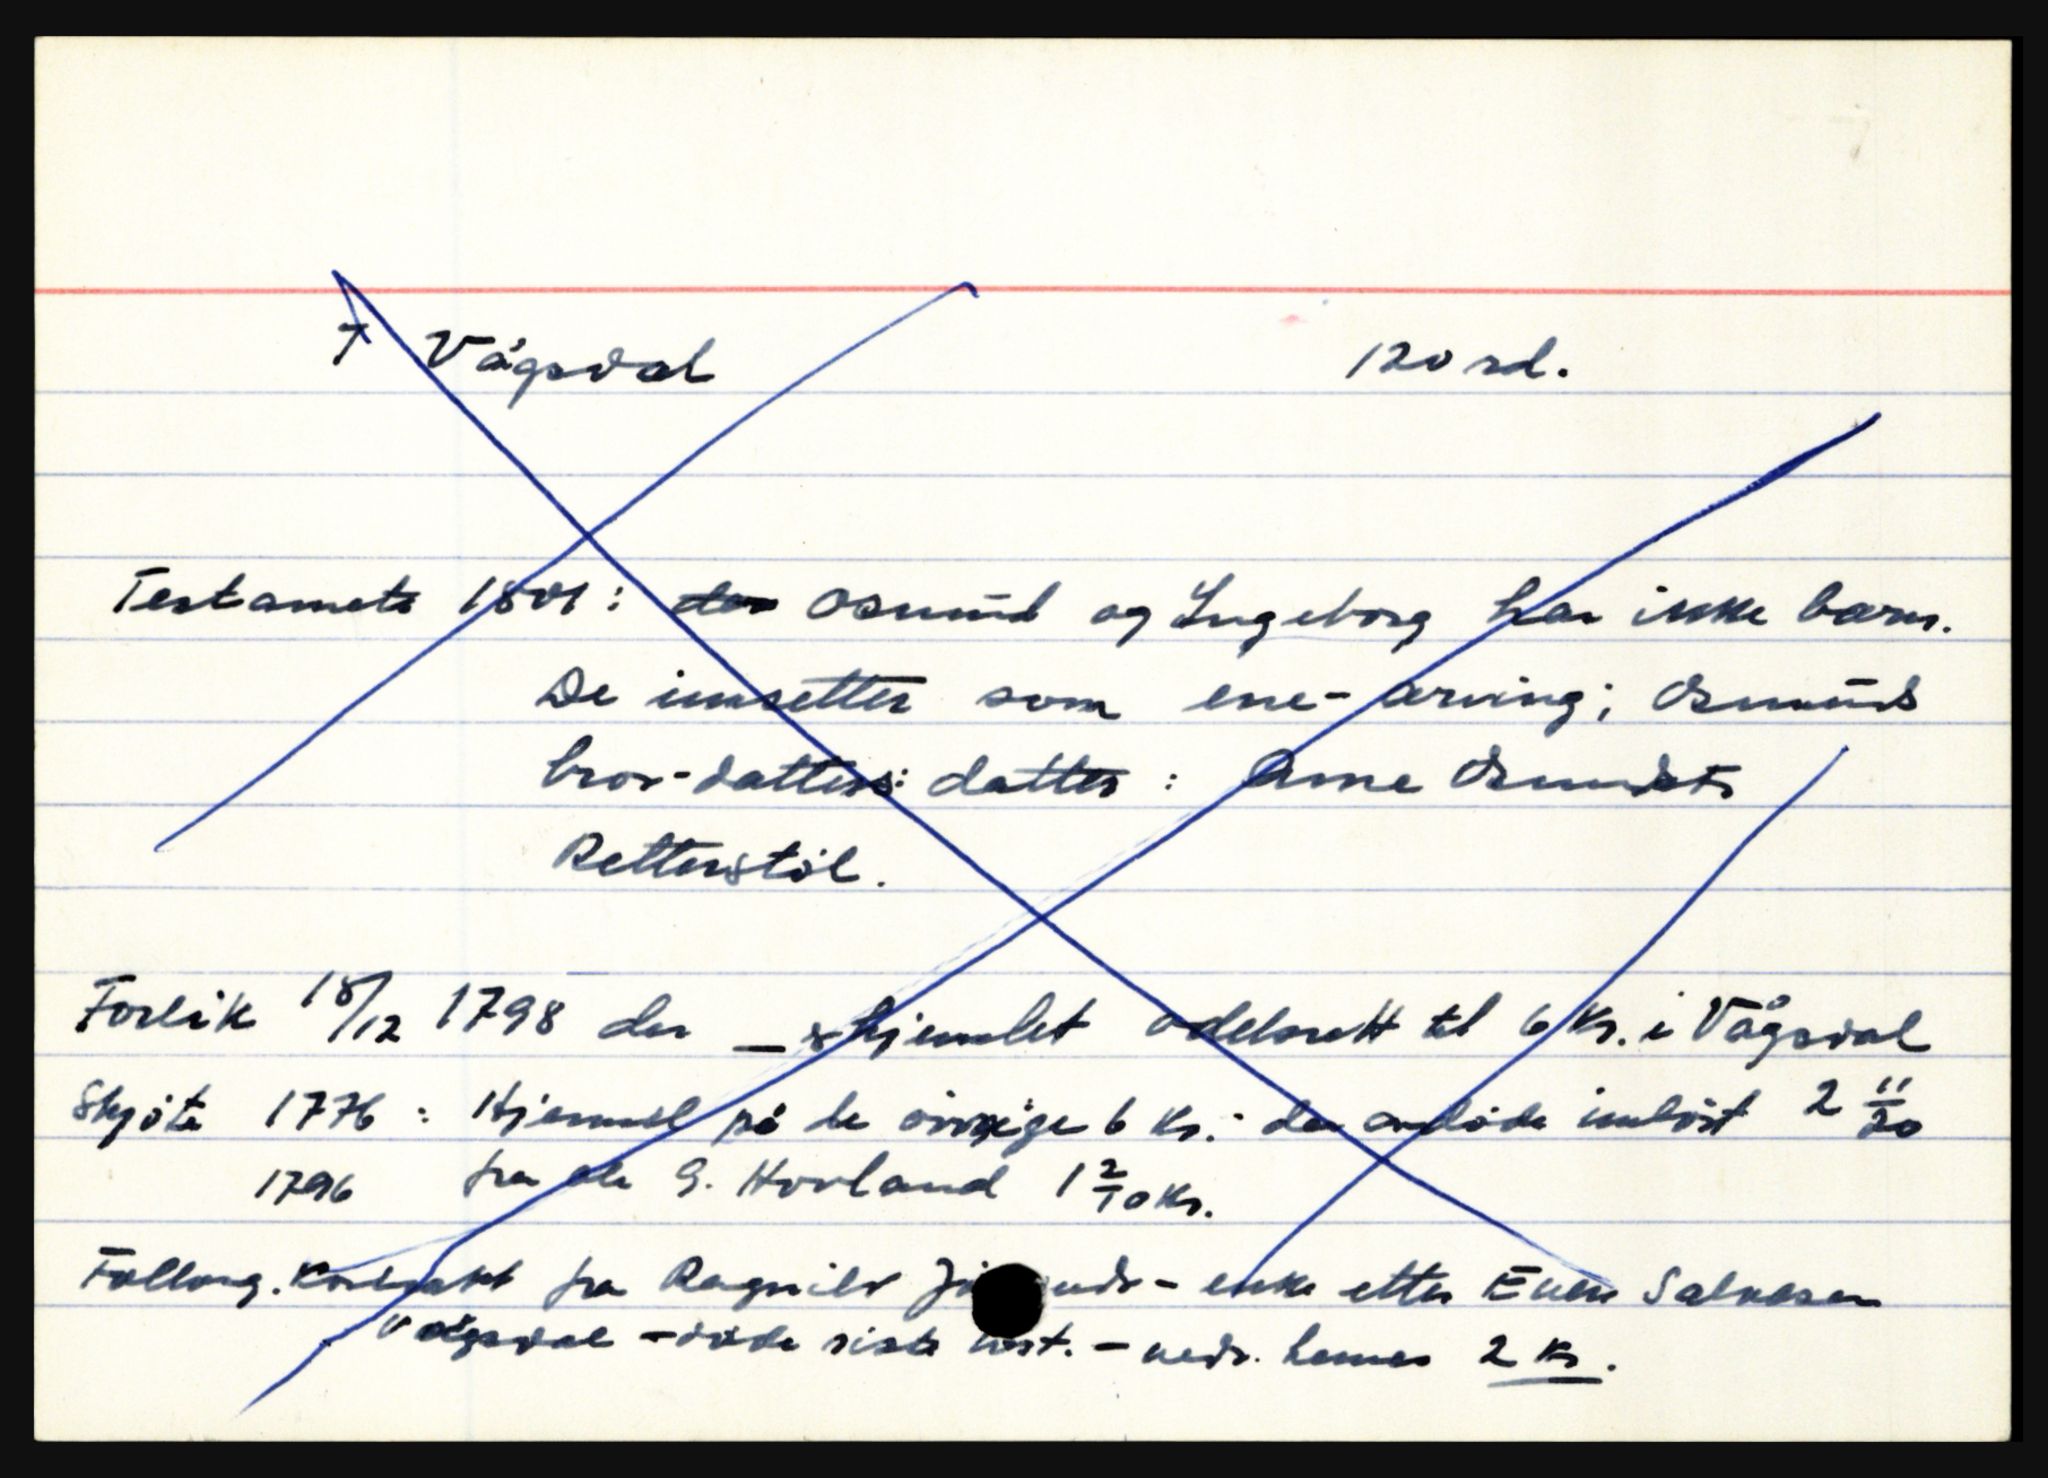 7 Vågsdal 120 rd.
Testamete 1801: Osmund og Ingeborg har ikke barn.
De innsetter som ene-arving; Osmunds
bror-datters: datter: Anne Osmundsdtr
Retterstöl.
Forlik 18/12 1798 der _ hjemlet odelsrett til 6 Kr. i Vågsdal
Skjöte 1776: Hjemmel på de övrige 6 Kr.: den avdöde innlöst 2 11/20
1796 fra Ole G. Hovland 1 2/10 Kr.
Follaug. Kontrakt fra Ragnild - enke etter Even Salvesen
Vågsdal - döde siste höst. - vedr. hennes 2 Kr.